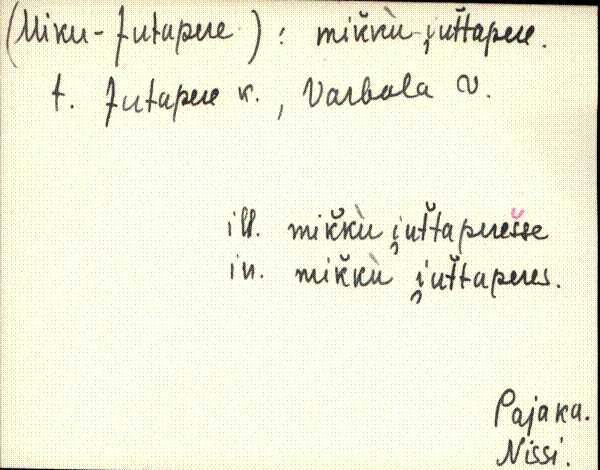 (Miku-Jutapere) : mik̆kù i̯ut̆tapere.
t. Jutapere k., Varbola v.
ill. mik̆kù i̯ut̆taperes̆se
in. mik̆kù i̯ut̆taperes.
Pajaka.
Nissi.